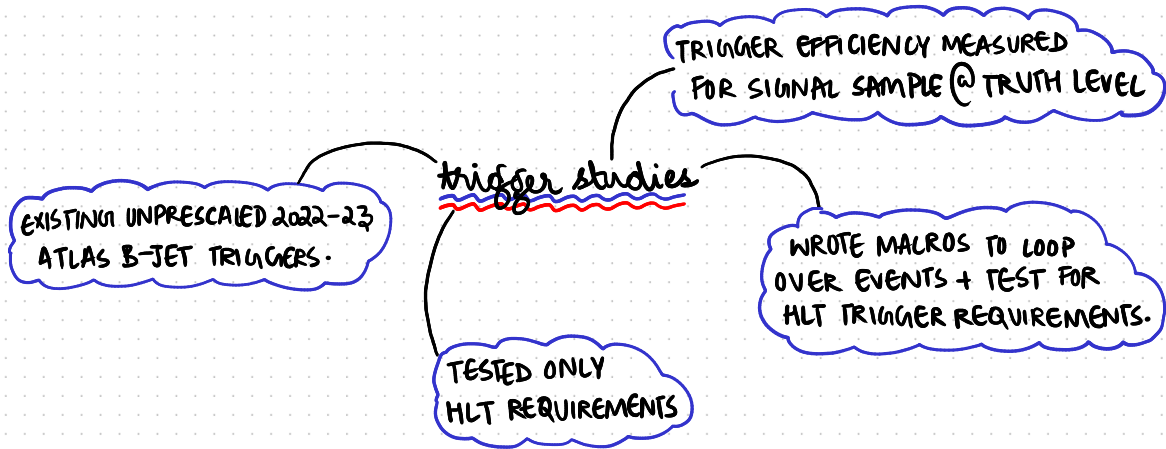 TRIGGER EFFICIENCY MEASURED
FOR SIGNAL SAMPLE @ TRUTH LEVEL
trigger studies
EXISTING UNPRESCALED 2022-23
ATLAS B-JET TRIGGERS.
WROTE MACROS TO LOOP
OVER EVENTS + TEST FOR
HLT TRIGGER REQUIREMENTS.
TESTED ONLY
HLT REQUIREMENTS